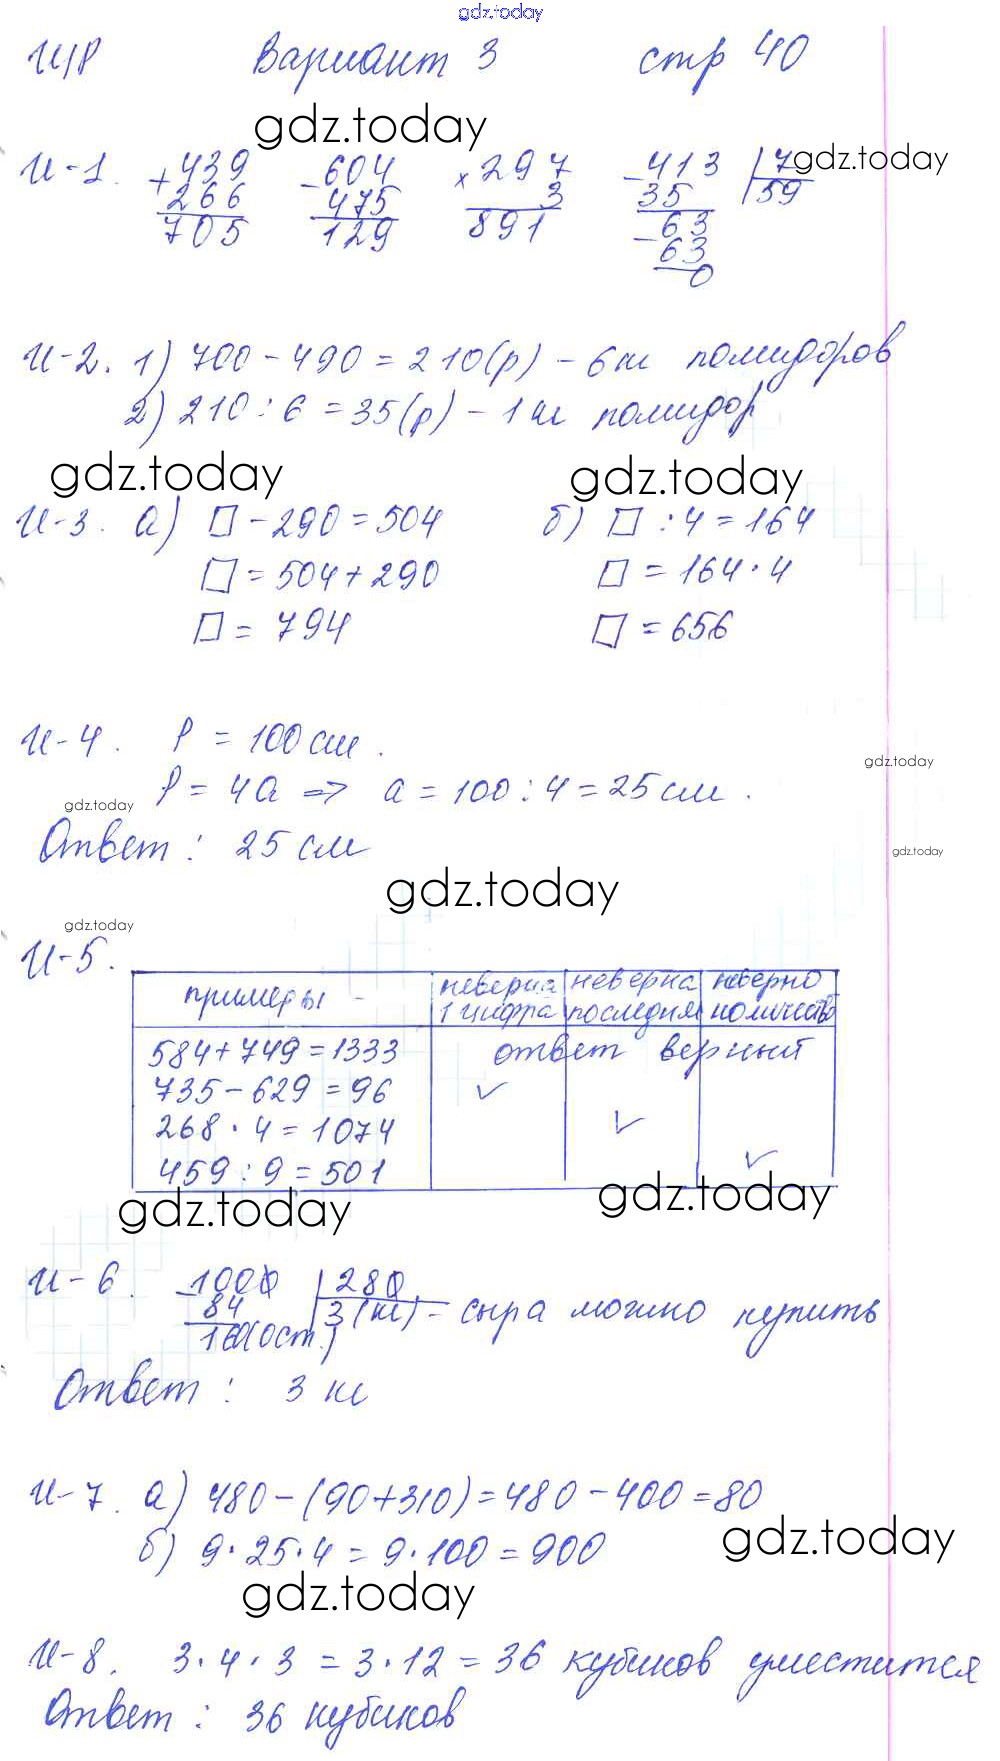 gdz.today
И/Р Вариант 3 стр 40
gdz.today
И-1. +439 -604 ×297 -413 |7 gdz.today
266 475 3 35 59
705 129 891 63
-63
0
И-2. 1) 700-490=210(р) - 6кг помидоров
2) 210:6=35(р) - 1кг помидор
gdz.today gdz.today
И-3. а) □-290=504 б) □:4=164
□=504+290 □=164·4
□=794 □=656
И-4. P=100см.
gdz.today
P=4a ⇒ a=100:4=25см.
gdz.today
Ответ: 25 см
gdz.today
gdz.today
gdz.today
И-5.
примеры неверна неверна неверно
1 цифра последняя количество
584+749=1333 ответ верный
735-629=96 ✓
268·4=1074 ✓
459:9=501 ✓
gdz.today gdz.today
И-6. -1000 |280
84 3(кг) - сыра можно купить
160(ост.)
Ответ: 3 кг
И-7. а) 480-(90+310)=480-400=80
б) 9·25·4=9·100=900
gdz.today
gdz.today
И-8. 3·4·3=3·12=36 кубиков уместится
Ответ: 36 кубиков